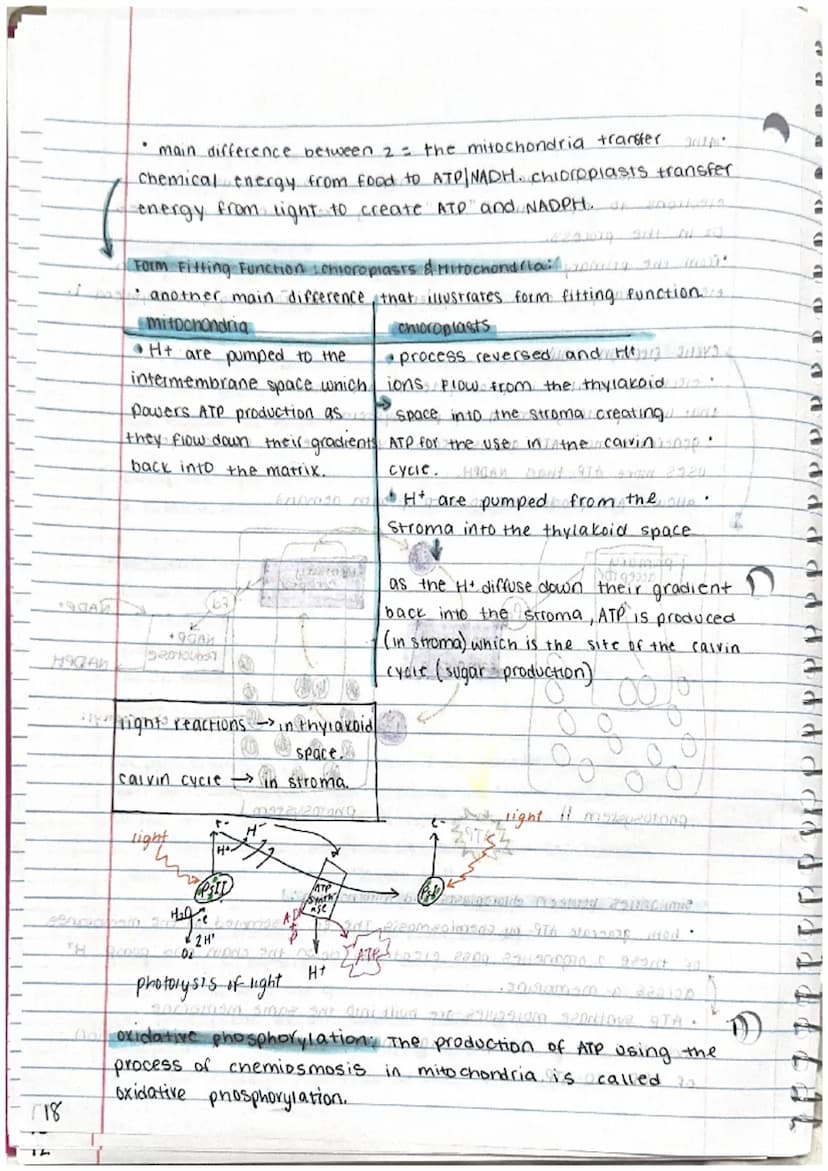 • main difference between 2 = the mitochondria transfer
chemical energy from food to ATP/NADH. chloroplasts transfer
energy from light to create ATP and NADPH.
Form Fitting Function: chloroplasts & Mitochondria:
• another main difference that illustrates form fitting function
mitochondria
• H+ are pumped to the
intermembrane space which
powers ATP production as
they flow down their gradients
back into the matrix.
chloroplasts
• process reversed and H+
ions flow from the thylakoid
space into the stroma creating
ATP for the use in the calvin
cycle.
• H+ are pumped from the
stroma into the thylakoid space
as the H+ diffuse down their gradient
back into the stroma, ATP is produced
(in stroma) which is the site of the calvin
cycle (sugar production)
light reactions → in thylakoid
space.
calvin cycle → in stroma.
light
PSII
e-
H+
H+
ATP
synth
ase
e-
light
PSI
H2O
e
2H+
O2
ADP
P
ATP
H+
photolysis of light
oxidative phosphorylation: The production of ATP using the
process of chemiosmosis in mitochondria is called
oxidative phosphorylation.
18